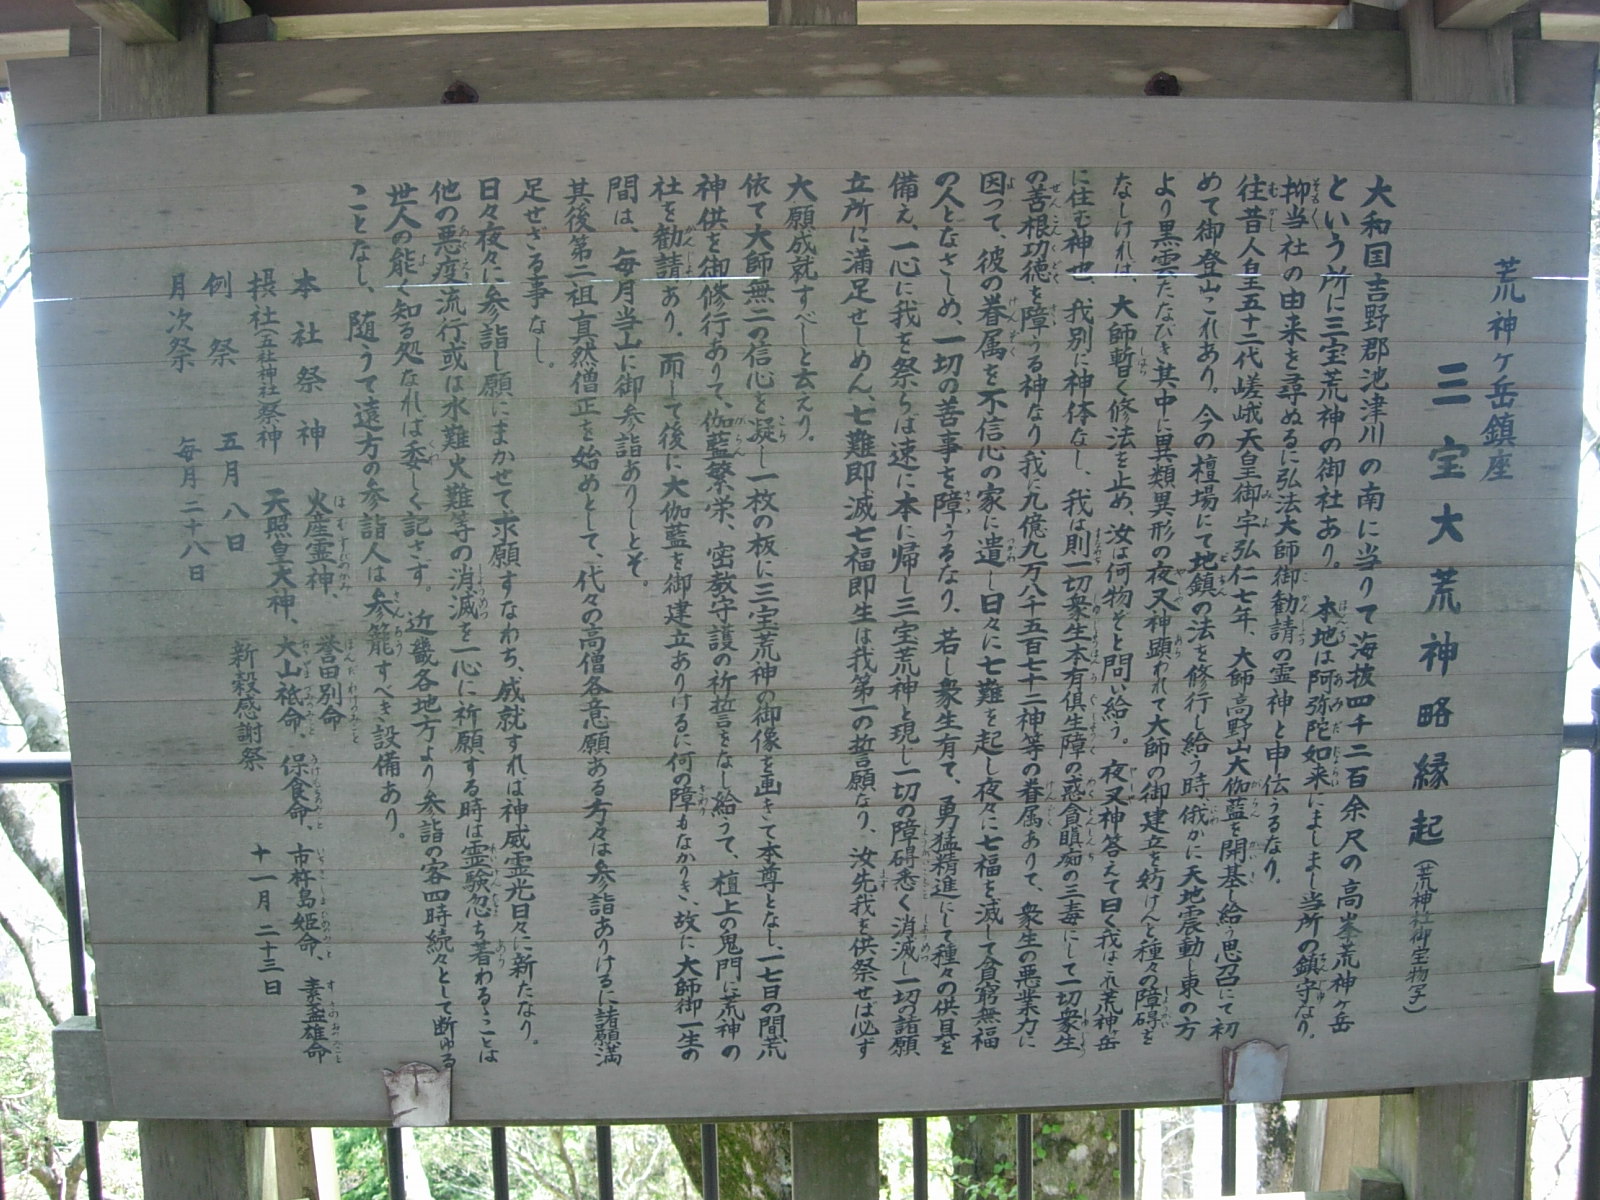 荒神ヶ岳鎮座
三宝大荒神略縁起(荒神社御宝物写)
大和国吉野郡池津川の南に当りて海抜四千二百余尺の高峯荒神ヶ岳
という所に三宝荒神の御社あり。本地は阿弥陀如来にましまし当所の鎮守なり。
抑当社の由来を尋ぬるに弘法大師御勧請の霊神と申伝うるなり。
往昔人皇五十二代嵯峨天皇御宇弘仁七年、大師高野山大伽藍を開基し給う思召にて初
めて御登山これあり。今の檀場にて地鎮の法を修行し給う時俄かに天地震動し東の方
より黒雲たなびき其中に異類異形の夜叉神顕われて大師の御建立を妨げんと種々の障碍を
なしければ、大師暫く修法を止め、汝は何物ぞと問い給う。夜叉神答えて曰く我はこれ荒神ヶ岳
に住む神也、我別に神体なし、我は則一切衆生本有倶生障の惑貪瞋痴の三毒にして一切衆生
の善根功徳を障うる神なり我に九億九万八千五百七十二神等の眷属ありて、衆生の悪業力に
因って、彼の眷属を不信心の家に遣し日々に七難を起し夜々に七福を滅して貪窮無福
の人となさしめ、一切の善事を障うるなり、若し衆生有て、勇猛精進にして種々の供具を
備え、一心に我を祭らば速に本に帰し三宝荒神と現し一切の障碍悉く消滅し一切の諸願
立所に満足せしめん、七難即滅七福即生は我第一の誓願なり、汝先我を供祭せば必ず
大願成就すべしと云えり。
依て大師無二の信心を凝し一枚の板に三宝荒神の御像を画きて本尊となし、一七日の間荒
神供を御修行ありて、伽藍繁栄、密教守護の祈誓をなし給うて、檀上の鬼門に荒神の
社を勧請あり。而して後に大伽藍を御建立ありけるに何の障もなかりき、故に大師御一生の
間は、毎月当山に御参詣ありしとぞ。
其後第二祖真然僧正を始めとして、代々の高僧各意願ある方々は参詣ありけるに諸願満
足せざる事なし。
日々夜々に参詣し願にまかせて求願すなわち、成就すれば神威霊光日々に新たなり。
他の悪疫流行或は水難火難等の消滅を一心に祈願する時は霊験忽ち著わるることは
世人の能く知る処なれば委しく記さず。近畿各地方より参詣の客四時続々として断ゆる
ことなし、随うて遠方の参詣人は参籠すべき設備あり。
本社祭神 火産霊神、誉田別命
摂社(五社神社)祭神 天照皇大神、大山祇命、保食命、市杵島姫命、素盞雄命
例祭 五月八日 新穀感謝祭 十一月二十三日
月次祭 毎月二十八日